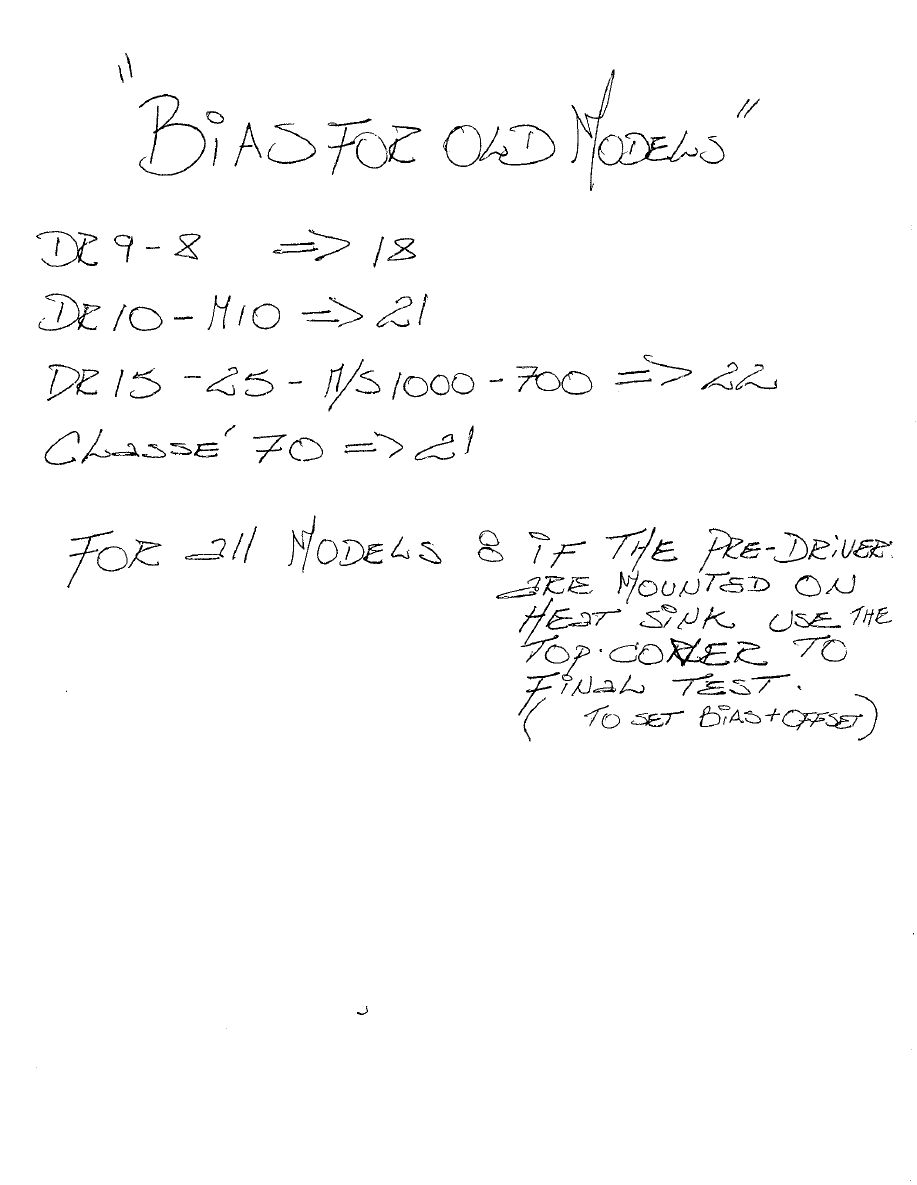 "BiAS FOR OLD MODELS"
DR 9 - 8 => 18
DR 10 - M10 => 21
DR 15 - 25 - M/S 1000 - 700 => 22
CLaSSE' 70 => 21
FOR all MODELS 8 iF THE PRE-DRiVER.
aRE MOUNTED ON
HEaT SiNK USE THE
TOP. COVER TO
FiNaL TEST.
( TO SET BiAS + OFFSET)